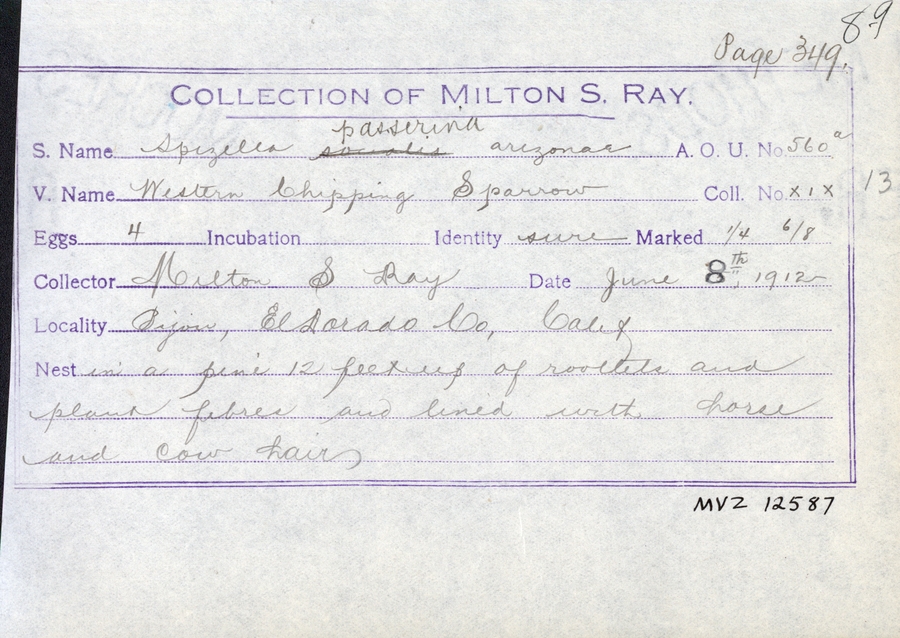 89
Page 349.
COLLECTION OF MILTON S. RAY.
passerina
S. Name Spizella socialis arizonae A. O. U. No. 560a
V. Name Western Chipping Sparrow Coll. No. X1X 13
Eggs 4 Incubation Identity sure Marked 1/4 6/8
Collector Milton S Ray Date June 8th, 1912
Locality Bijou, El Dorado Co, Calif
Nest in a pine 12 feet up of rootlets and
plant fibres and lined with horse
and cow hair
MVZ 12587